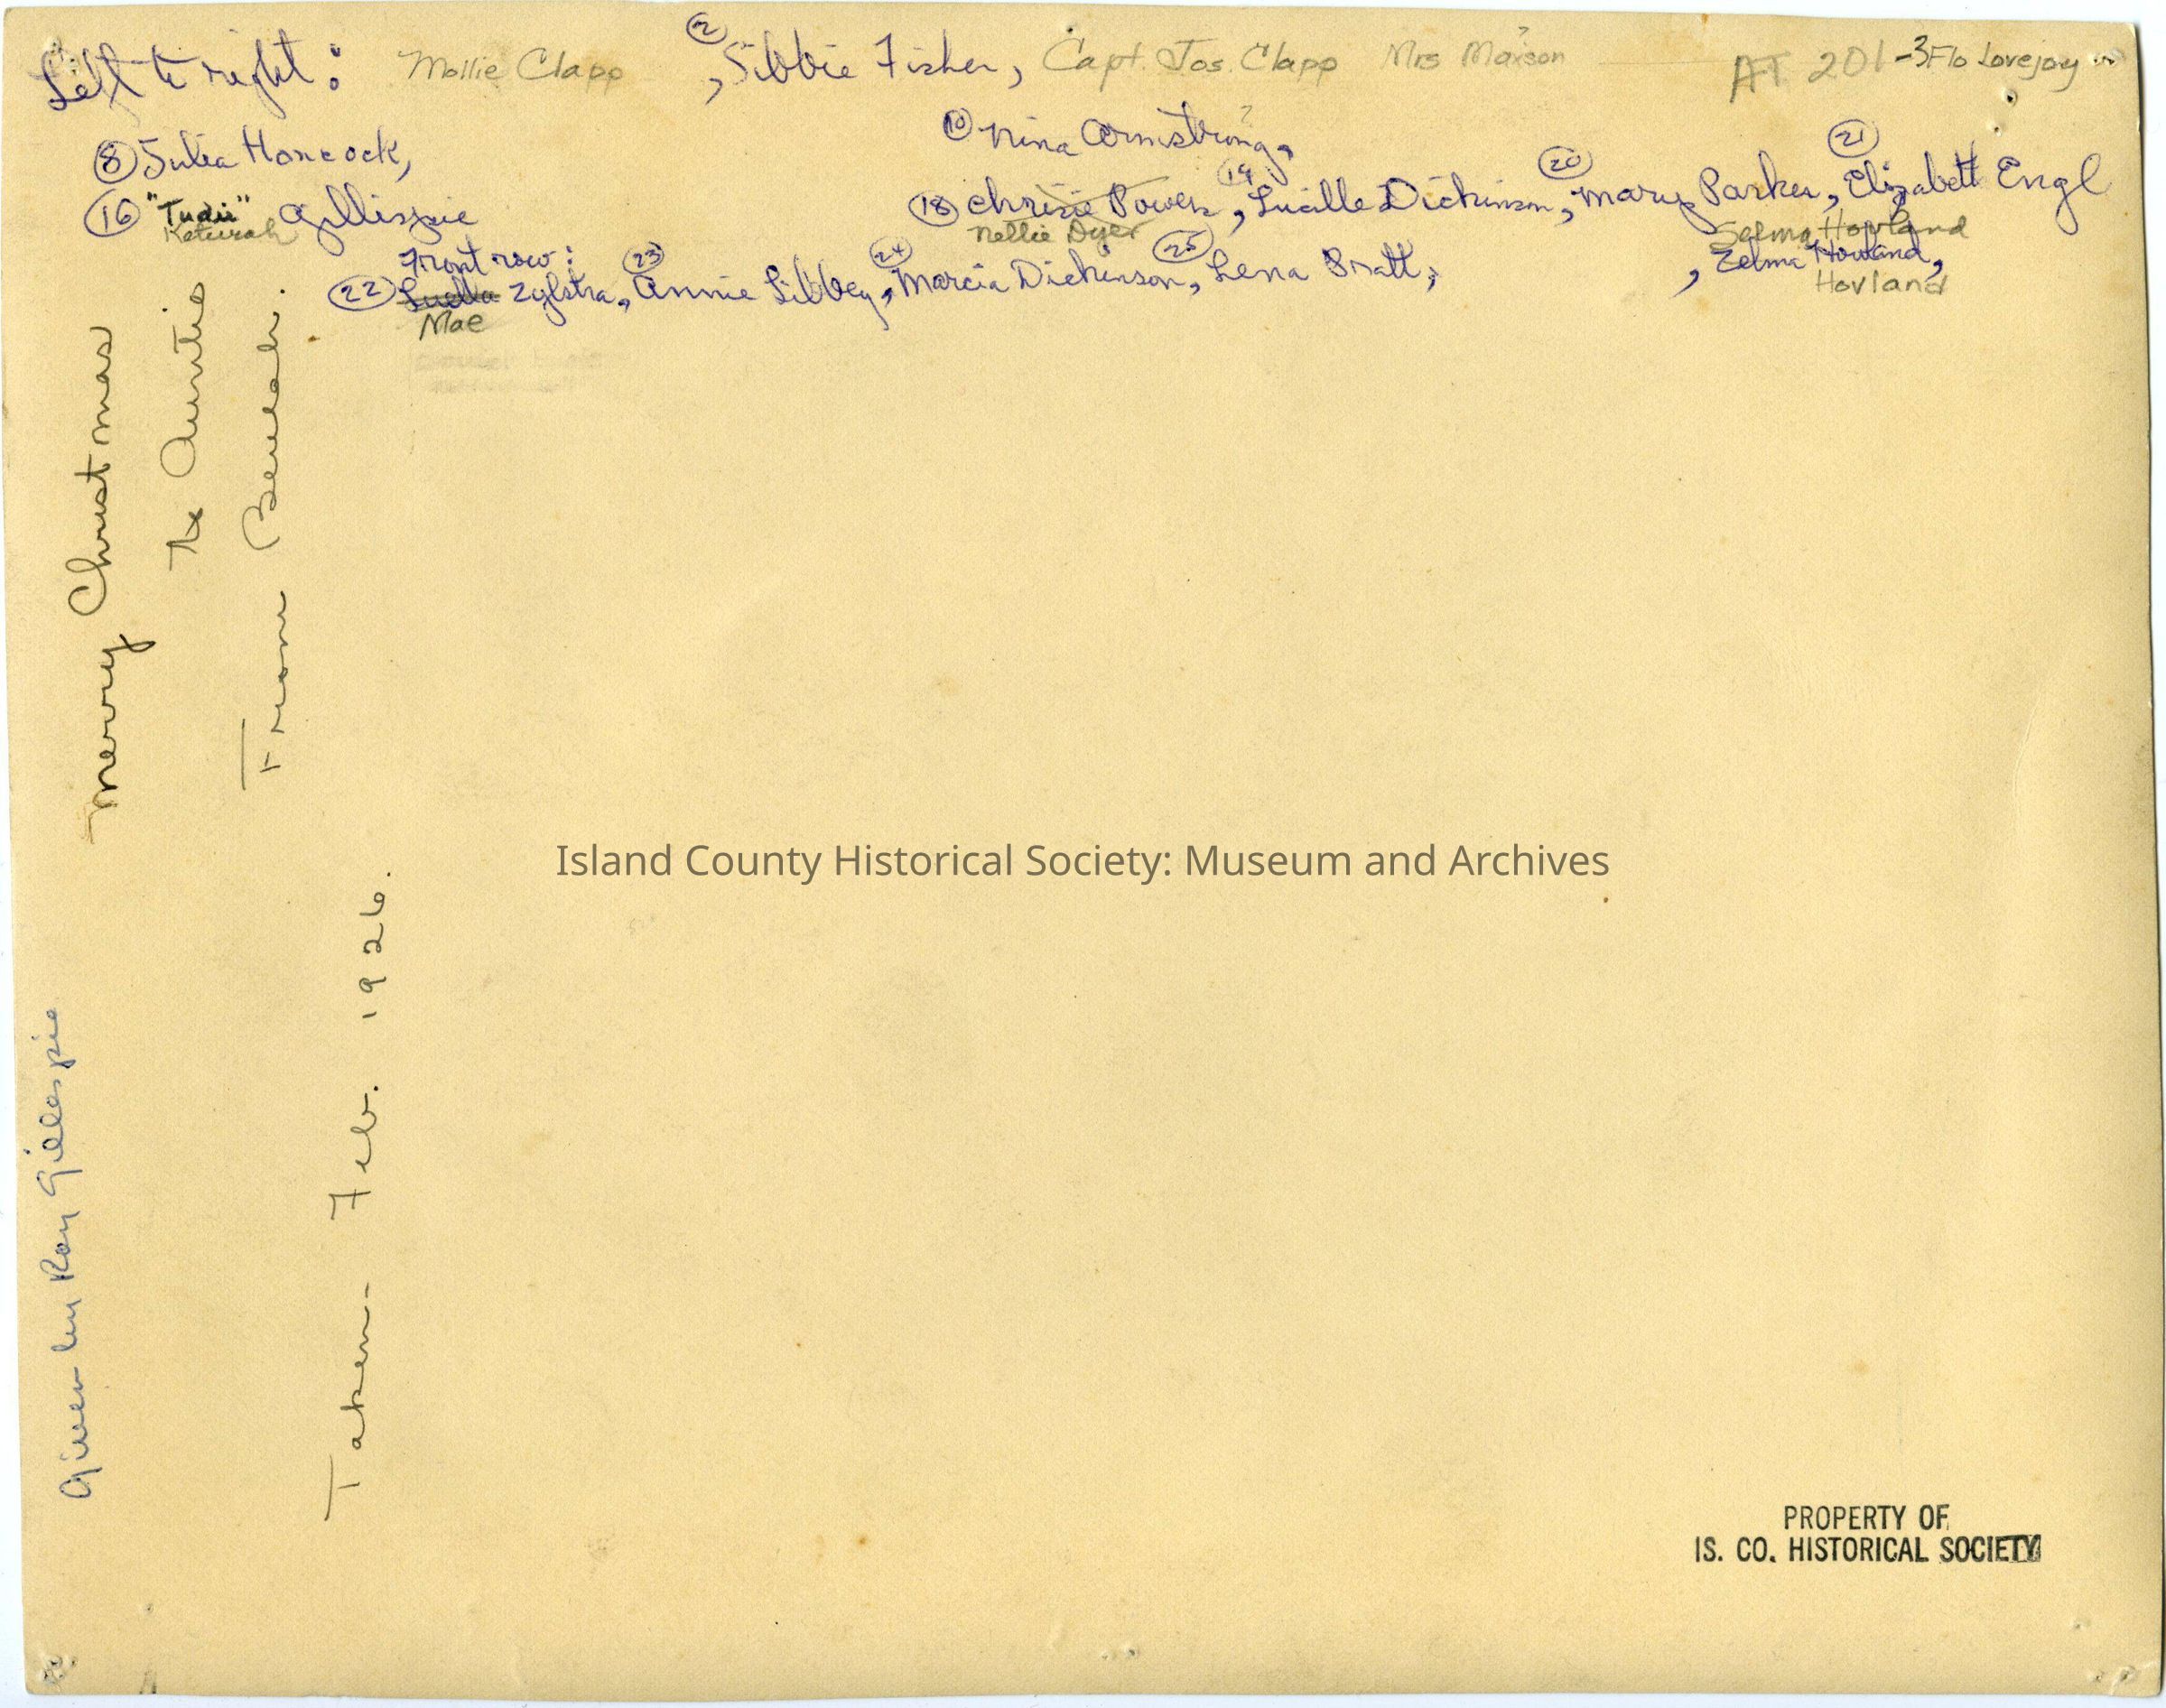 Left to right: Mollie Clapp ②, Sibbie Fisher, Capt. Jos. Clapp Mrs Maxson ? AT 201-3 Flo Lovejoy
⑧ Julia Hancock, ⑩ Nina Armstrong ?,
⑯ "Tudii" Gillispie ⑱ Chrissie Powers, ⑲ Lucille Dickinson, ⑳ Mary Parker, ㉑ Elizabeth Engl
Keturah Nellie Dyer Selma Hovland
Front row:
㉒ Luella Zylstra, ㉓ Annie Libbey, ㉔ Marcia Dickinson, ㉕ Lena Pratt, , Zelma Howland,
Mae Hovland
Merry Christmas
to Auntie
From Beulah.
Taken - Feb. 1926.
Given by Ray Gillespie
Island County Historical Society: Museum and Archives
PROPERTY OF
IS. CO. HISTORICAL SOCIETY